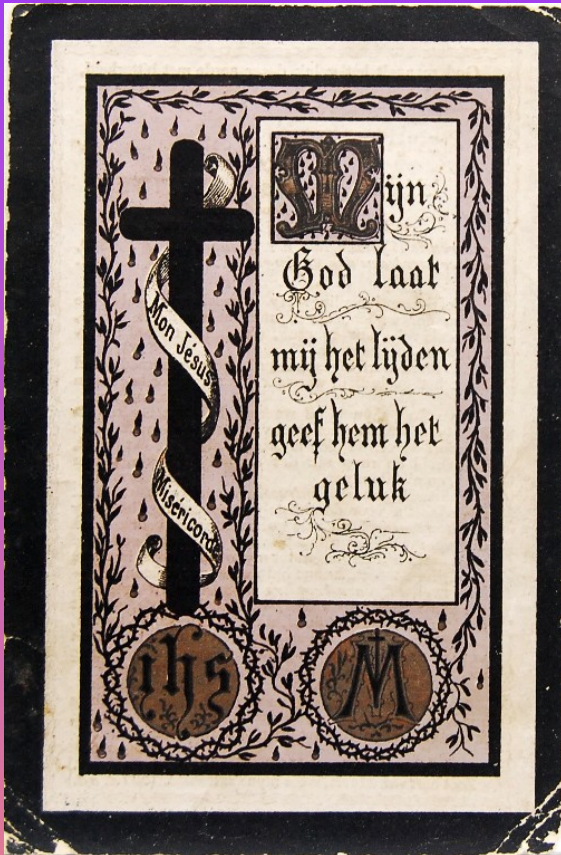 Mon Jésus
Miséricorde
Mijn
God laat
mij het lijden
geef hem het
geluk
ihs
M